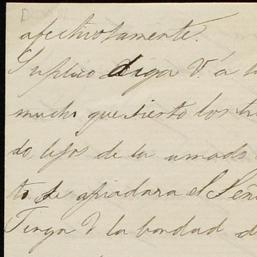 afectuosamente.
Suplico diga V. á l
mucho que siento los tr
do lejos de la amada
to se apiadara el Señ
Tenga V. la bondad d